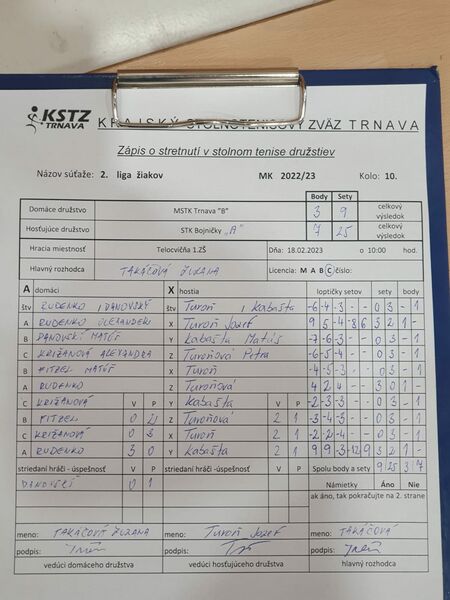 KSTZ
TRNAVA
KRAJSKÝ STOLNOTENISOVÝ ZVÄZ TRNAVA
Zápis o stretnutí v stolnom tenise družstiev
Názov súťaže: 2. liga žiakov MK 2022/23 Kolo: 10.
Body Sety
Domáce družstvo MSTK Trnava "B" 3 9 celkový výsledok
Hosťujúce družstvo STK Bojničky „A" 7 25 celkový výsledok
Hracia miestnosť Telocvičňa 1.ZŠ Dňa: 18.02.2023 o 10:00 hod.
Hlavný rozhodca TAKÁČOVÁ ZUZANA Licencia: M A B C číslo:
A domáci X hostia loptičky setov sety body
štv RUDENKO, DANOVSKÝ štv Turoň, Kabašta -6 -4 -3 - - 0 3 - 1
A RUDENKO OLEXANDER X Turoň Jozef 9 5 -4 -8 6 3 2 1 -
B DANOVSKÝ MATÚŠ Y Kabašta Matúš -7 -6 -3 - - 0 3 - 1
C KRIŽANOVÁ ALEXANDRA Z Turoňová Petra -6 -5 -4 - - 0 3 - 1
B FITZEL MATÚŠ X Turoň -4 -3 - - 0 3 - 1
A RUDENKO Z Turoňová 4 2 4 - - 3 0 1 -
C KRIŽANOVÁ V P Y Kabašta V P -2 -3 -3 - - 0 3 - 1
B FITZEL 0 2 Z Turoňová 2 1 -3 -4 -3 - - 0 3 - 1
C KRIŽANOVÁ 0 3 X Turoň 2 1 -2 -2 -4 - - 0 3 - 1
A RUDENKO 3 0 Y Kabašta 2 1 9 9 -3 -12 9 3 2 1 -
striedaní hráči - úspešnosť V P striedaní hráči - úspešnosť V P Spolu body a sety 9 25 3 7
DANOVSKÝ 0 1 Námietky Áno Nie
ak áno, tak pokračujte na 2. strane
meno: TAKÁČOVÁ ZUZANA meno: Turoň Jozef meno: TAKÁČOVÁ
podpis: podpis: podpis:
vedúci domáceho družstva vedúci hosťujúceho družstva hlavný rozhodca